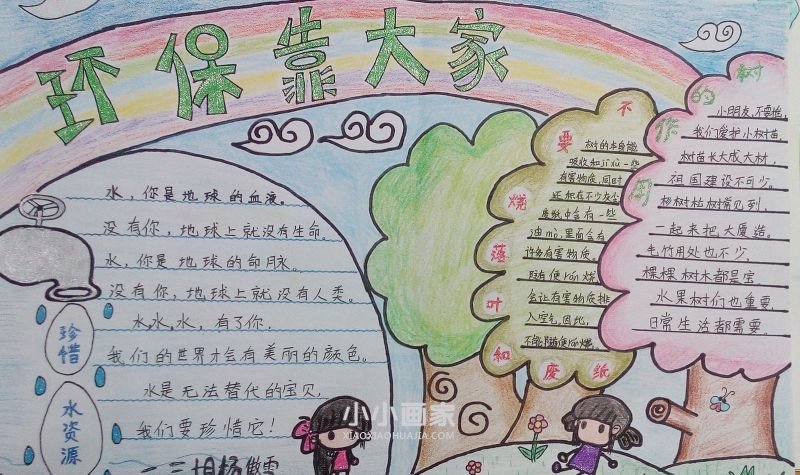 环保靠大家
水，你是地球的血液。
没有你，地球上就没有生命。
水，你是地球的命脉。
没有你，地球上就没有人类。
水，水，水，有了你，
我们的世界才会有美丽的颜色。
水是无法替代的宝贝，
我们要珍惜它！
珍惜
水资源
不要烧落叶和废纸
树的本身能
吸收和jī xù一些
有害物质，同时
废纸中含有一些
油mò，里面含有
许多有害物质，
会让有害物质排
入空气，因此，
树的作用
小朋友，不要
我们爱护小树苗，
树苗长大成大材，
祖国建设不可少。
杨树松树常见到，
一起来把大厦造。
毛竹用处也不少，
棵棵树木都是宝
水果树们也重要
日常生活都需要。
小小画家
XIAOXIAOHUAJIA.COM